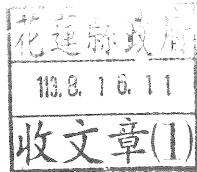 花蓮縣政府
113.8.16.11
收文章(1)